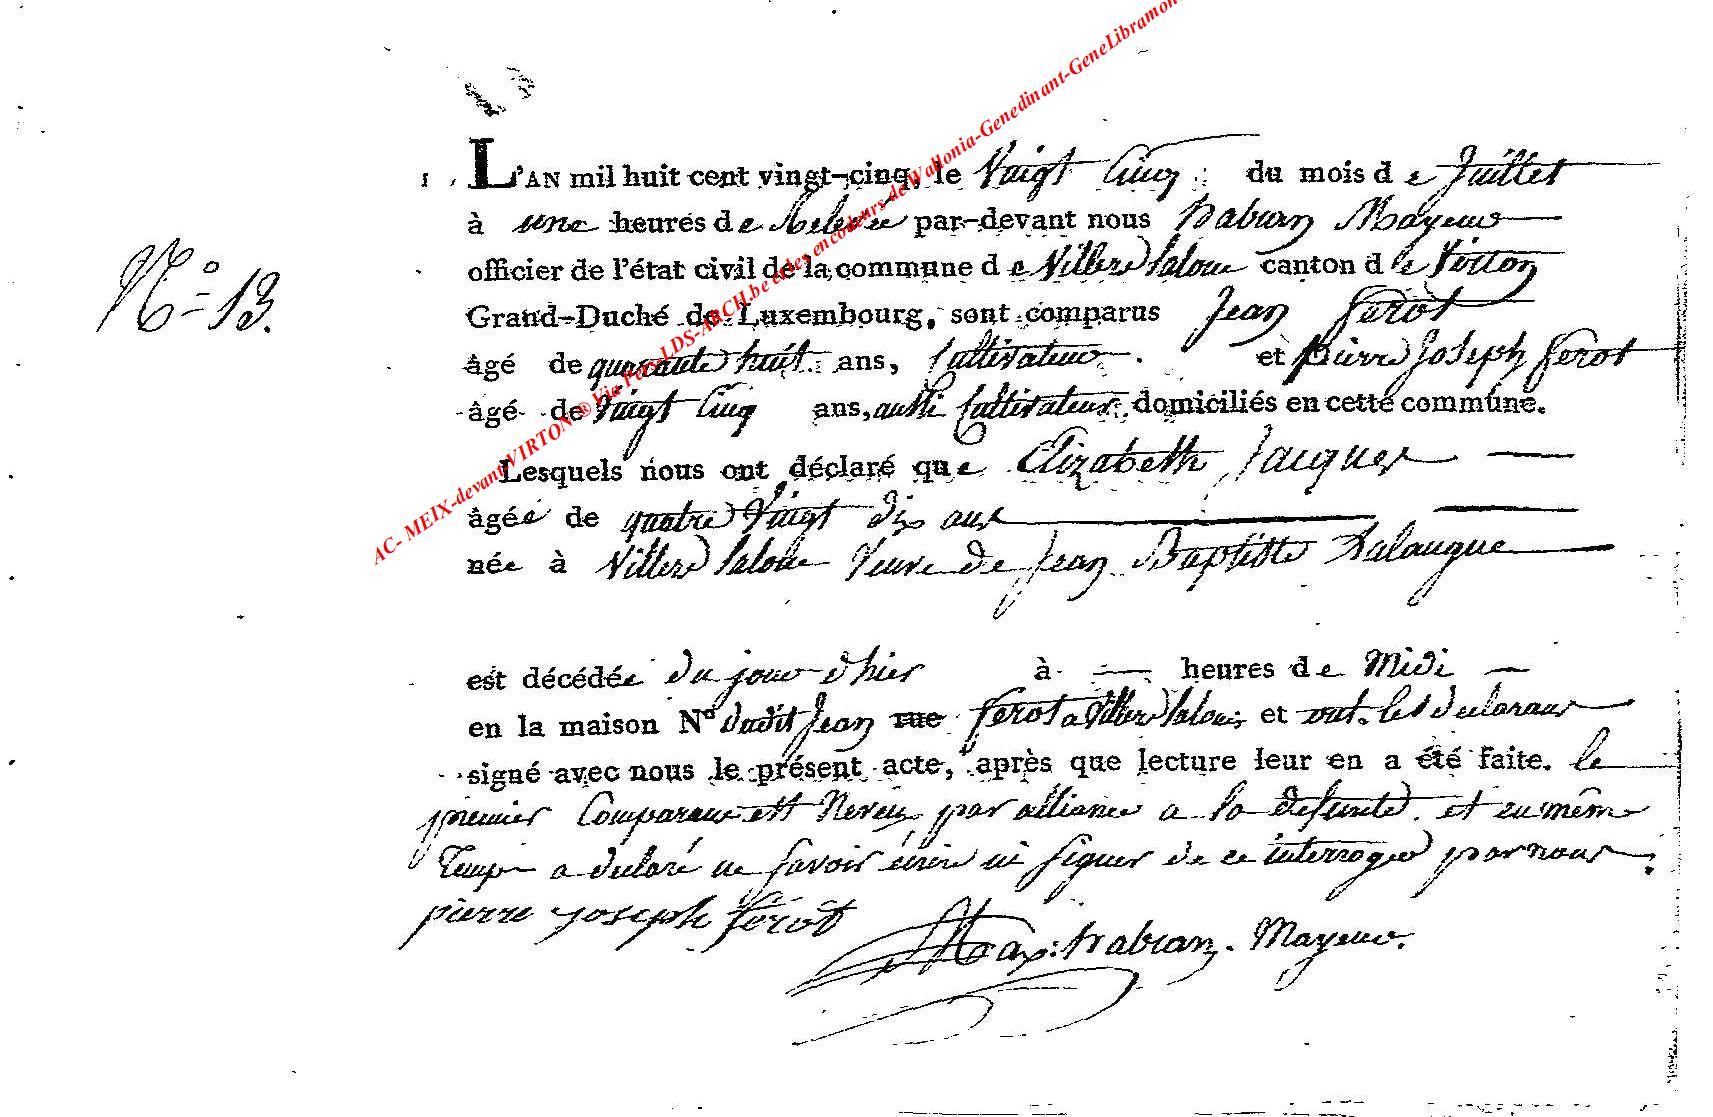 AC- MEIX-devant VIRTON ® Via Pers LDS-ARCH.be et les encodeurs de Wallonia-Genedinant-GeneLibramon
L'AN mil huit cent vingt-cinq, le Vaigt Cinq du mois de Juillet
à une heures de Relevée par-devant nous habran Mayeur
officier de l'état civil de la commune de Villers laloue canton de Virton
N° 13.
Grand-Duché de Luxembourg, sont comparus Jean ferot
âgé de quarante huit ans, Cultivateur. et pierre Joseph ferot
âgé de Vaigt Cinq ans, aussi Cultivateur domiciliés en cette commune.
Lesquels nous ont déclaré que Elizabeth Jacques
âgée de quatre Vaigt dix ans
née à Villers laloue Veuve de Jean Baptiste Salangue
est décédée du jour d'hier à heures de Midi
en la maison N° dudit Jean rue ferot a Villers laloue et ont les declarans
signé avec nous le présent acte, après que lecture leur en a été faite. le
premier Comparant est Neveu par alliance a la defunte et en même
Temp a declaré ne savoir écrire ni signer de ce interrogé par nous.
pierre joseph férot habran. Mayeur.